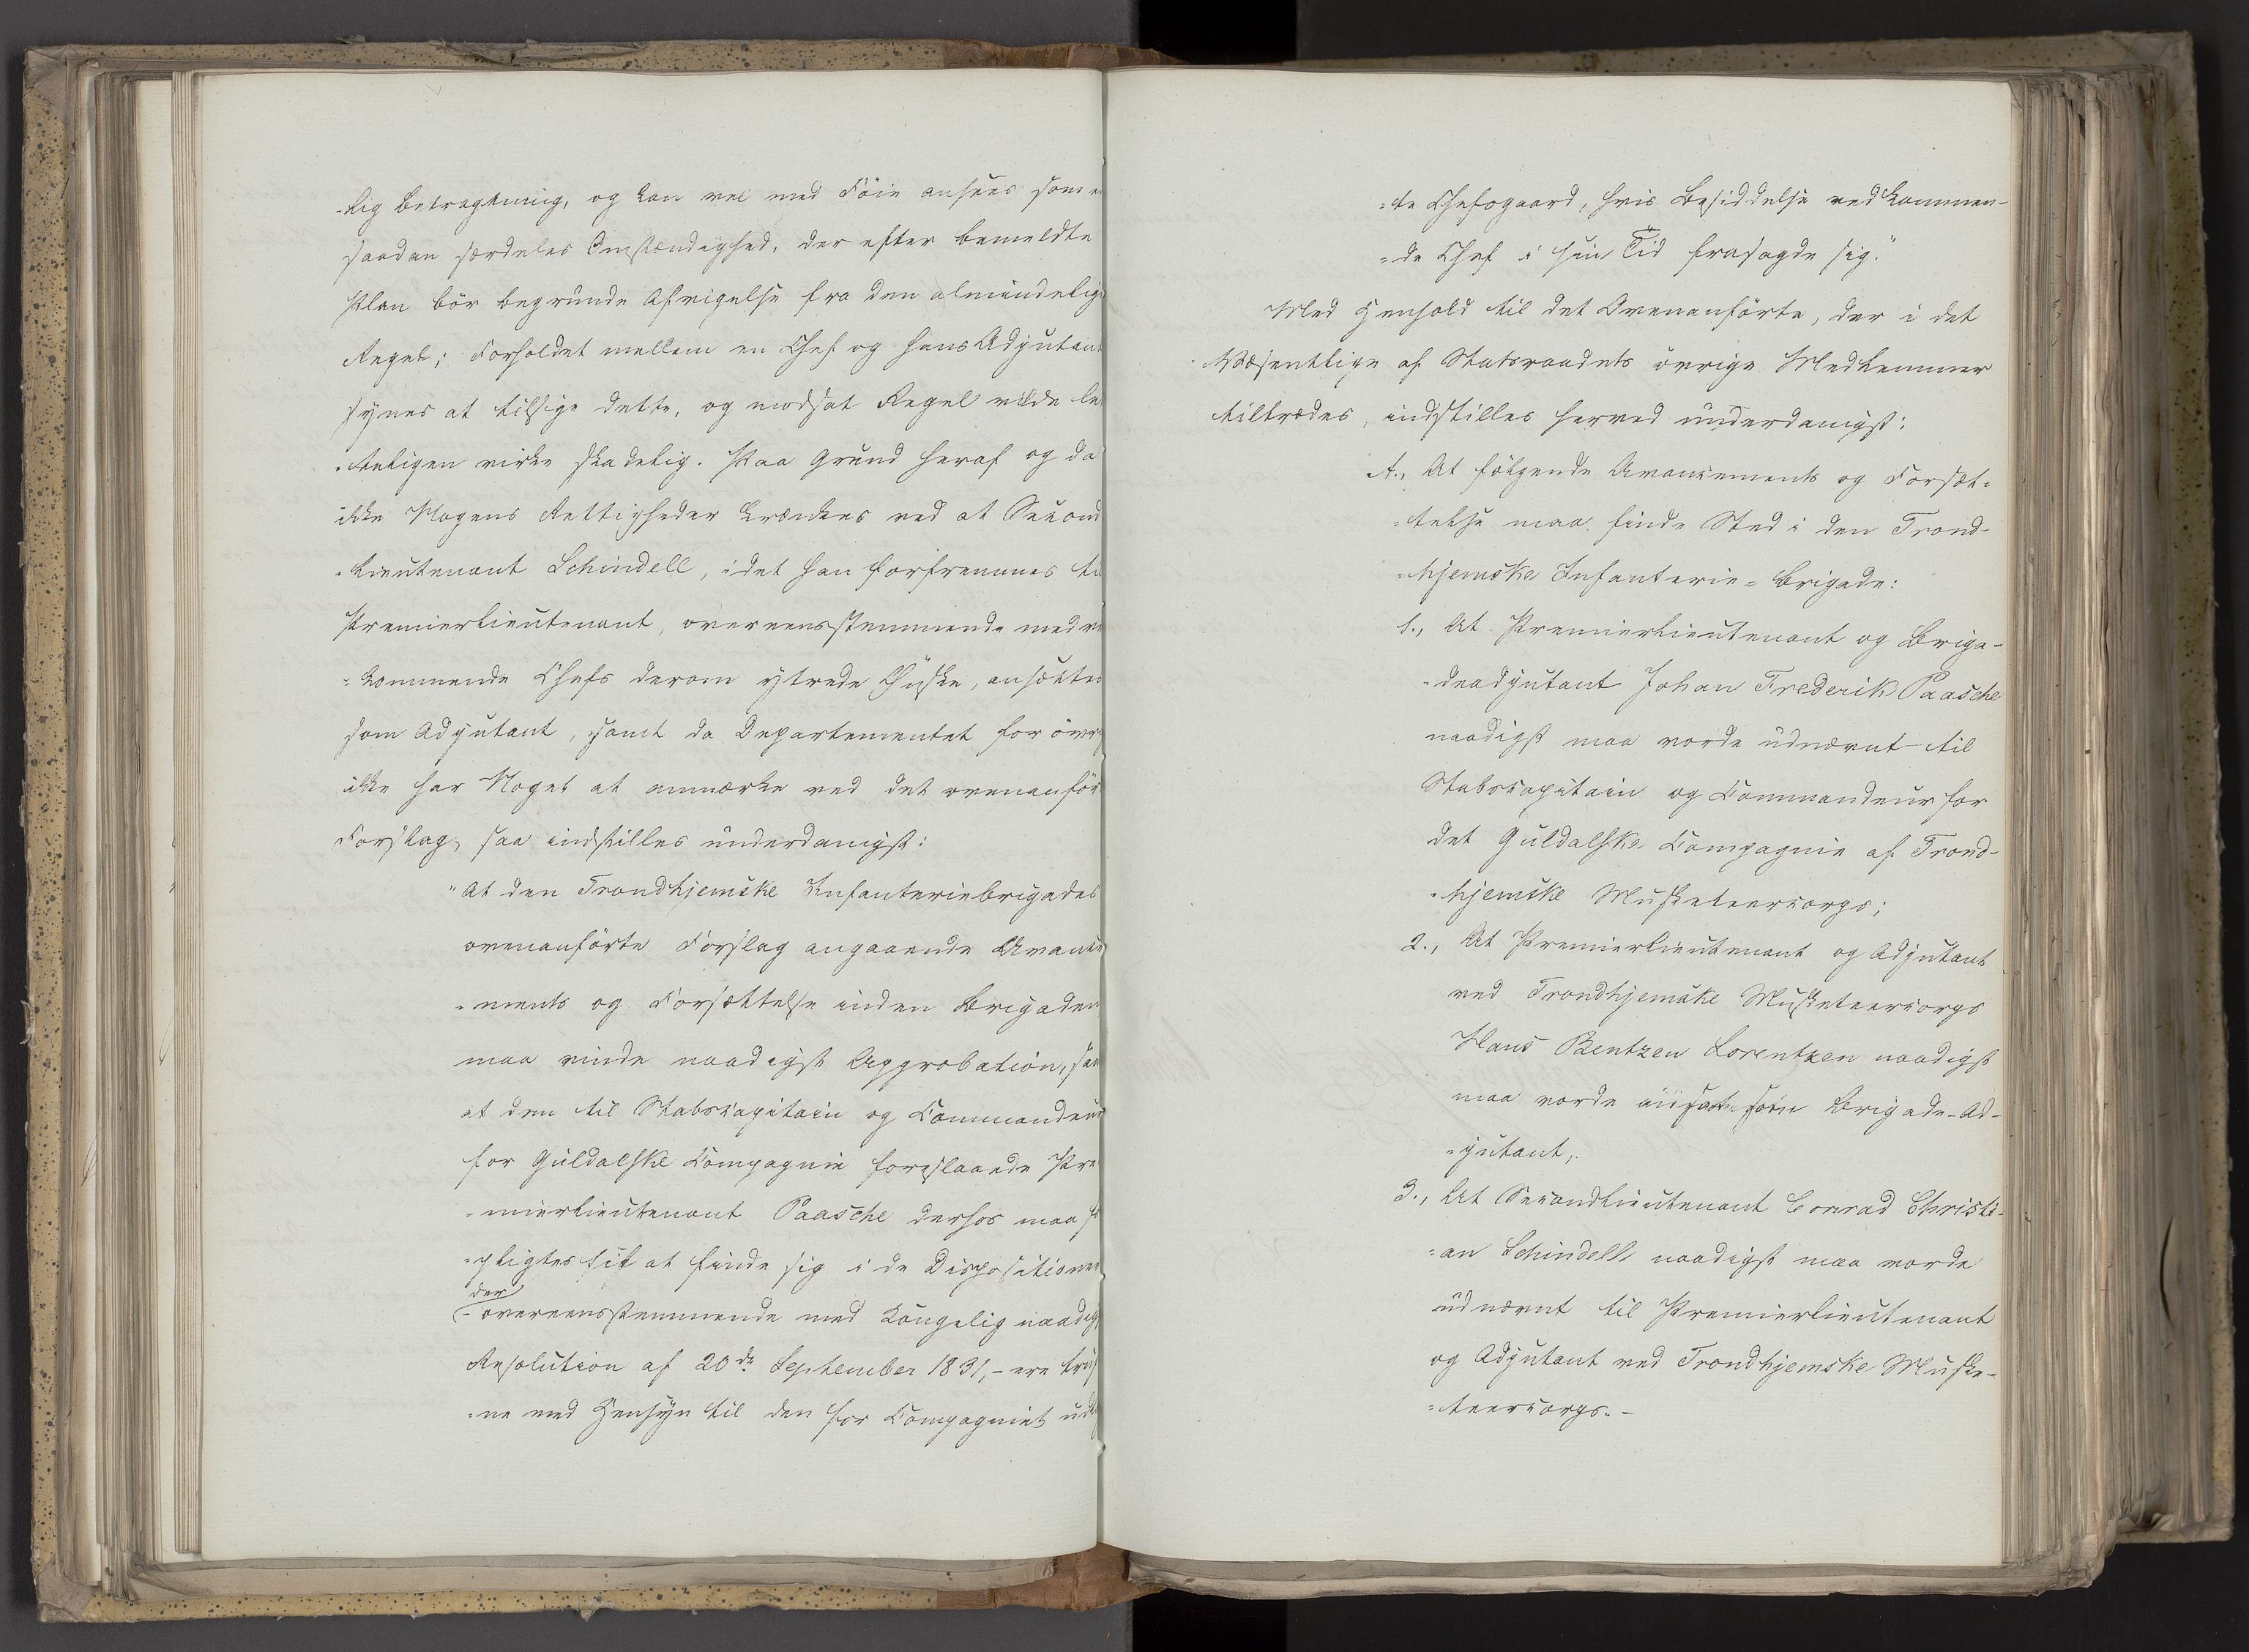 -lig Betragtning, og kan vel med Föie ansees som e
saadan særdeles Omstændighed, der efter bemeldte
Plan bör begrunde Afvigelse fra den almindelig
Regel; Forholdet mellem en Chef og hans Adjutant
synes at tilsige dette, og modsat Regel vilde le
-teligen virke skadelig. Paa Grund heraf og da
ikke Nogens Rettigheder krænkes ved at Second
-Lieutenant Schindell, idet han forfremmes ti
Premierlieutenant, overeensstemmende med ve
-kommende Chefs derom yttrede Önske, ansættes
som Adjutant, samt da Departementet for övri
ikke har Noget at anmærke ved det ovenanför
Forslag, saa indstilles underdanigst:
"At den Trondhjemske Infanteriebrigades
ovenanförte Forslag angaaende Avance
-ments og Forsættelse inden Brigaden
maa vinde naadigst Approbation, saa
at den til Stabscapitain og Commandeur
for Guldalske Compagnie foreslaaede Pre
-mierlieutenant Paasche derhos maa f
-pligtes til at finde sig i de Dispositioner
der
-overeensstemmende med Kongelig naadigs
Resolution af 20de September 1831,- ere truf
-ne med Hensyn til den for Compagniet ud
-te Chefsgaard, hvis Besiddelse vedkommen-
-de Chef i sin Tid frasagde sig."
Med Henhold til det Ovenanförte, der i det
Væsentlige af Statsraadets övrige Medlemmer
tiltrædes, indstilles herved underdanigst:
A., At fölgende Avancements og Forsæt-
-telse maa finde Sted i den Trond-
-hjemske Infanterie-Brigade:
1., At Premierlieutenant og Briga-
-deadjutant Johan Frederik Paasche
naadigst maa vorde udnævnt til
Stabscapitain og Commandeur for
det Guldalske Compagnie af Trond-
-hjemske Musketeercorps;
2., At Premierlieutenant og Adjutant
ved Trondhjemske Musketeercorps
Hans Bentzen Lorentzen naadigst
maa vorde ansat som Brigade-Ad-
-jutant,
3., At Secondlieutenant Conrad Christi-
-an Schindell naadigst maa vorde
udnævnt til Premierlieutenant
og Adjutant ved Trondhjemske Muske-
-teercorps.-